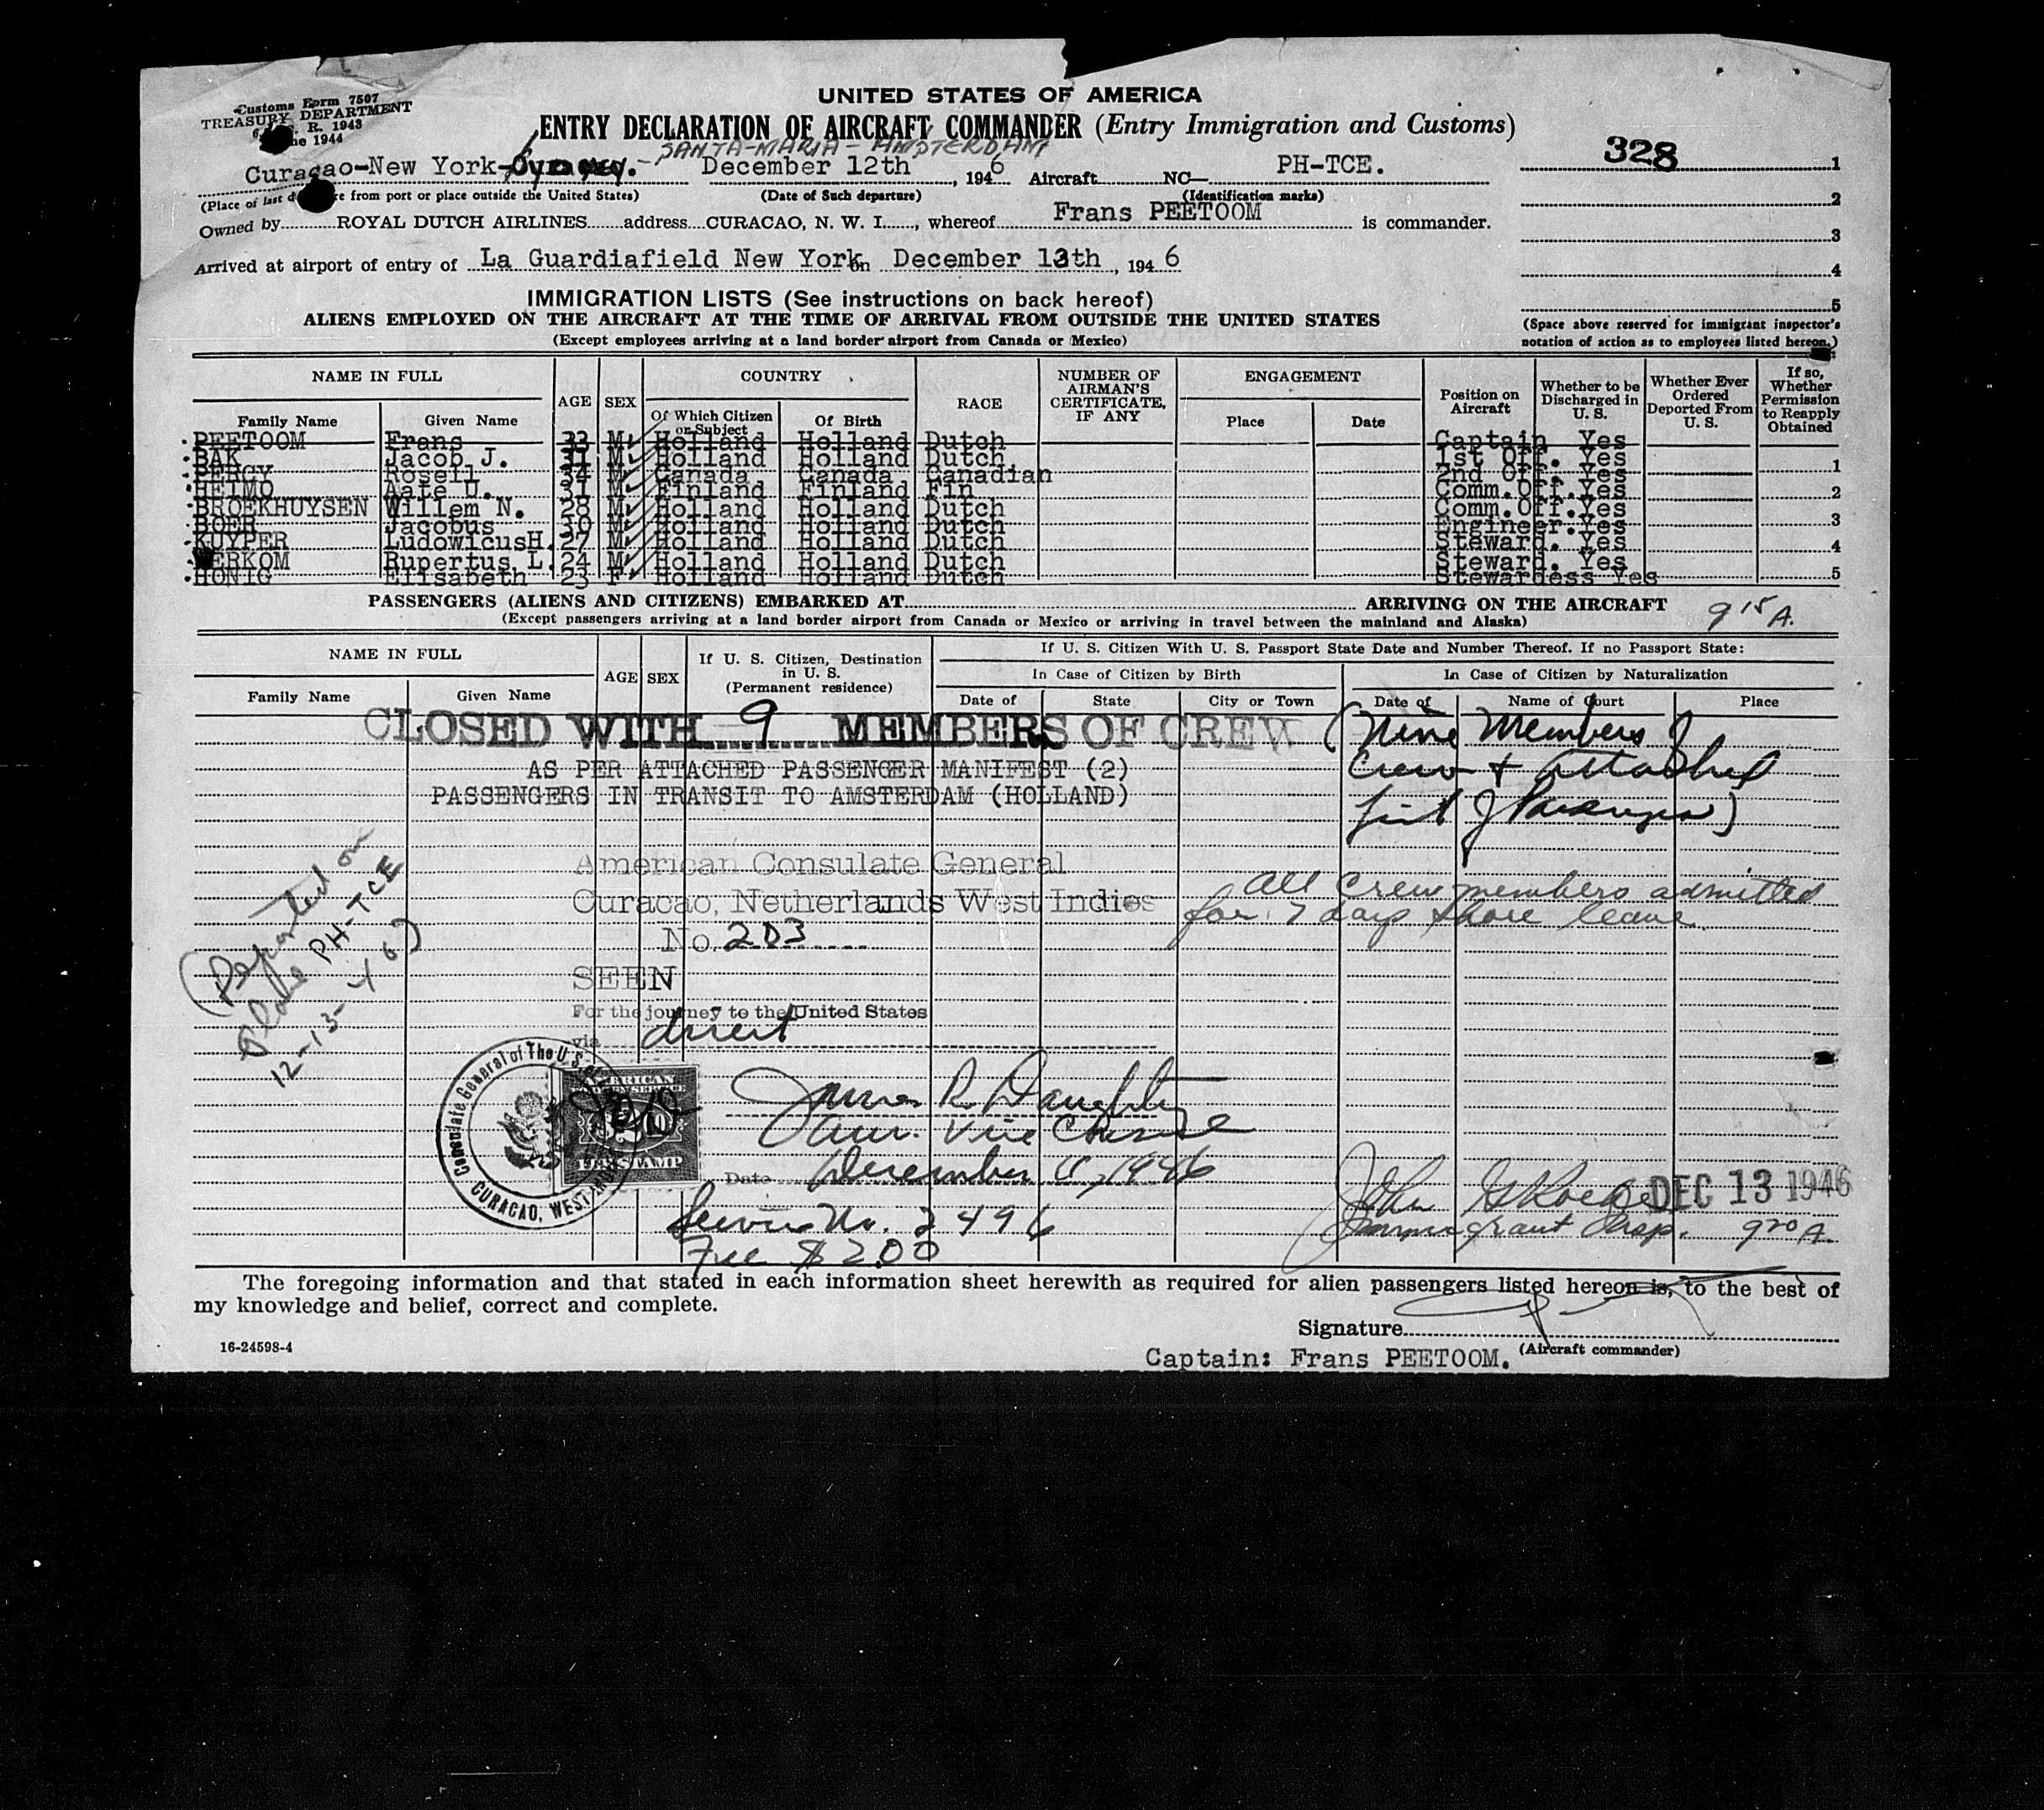 Customs Form 7507
TREASURY DEPARTMENT
R. 1943
1944
UNITED STATES OF AMERICA
ENTRY DECLARATION OF AIRCRAFT COMMANDER (Entry Immigration and Customs)
SANTA-MARIA - AMSTERDAM
328
Curaçao-New York- December 12th, 1946 Aircraft NC PH-TCE.
(Place of last from port or place outside the United States) (Date of Such departure) (Identification marks)
Owned by ROYAL DUTCH AIRLINES address CURACAO, N. W. I., whereof Frans PEETOOM is commander.
Arrived at airport of entry of La Guardiafield New York on December 13th, 1946
1
2
3
4
5
(Space above reserved for immigrant inspector's notation of action as to employees listed hereon.)
IMMIGRATION LISTS (See instructions on back hereof)
ALIENS EMPLOYED ON THE AIRCRAFT AT THE TIME OF ARRIVAL FROM OUTSIDE THE UNITED STATES
(Except employees arriving at a land border airport from Canada or Mexico)
NAME IN FULL AGE SEX COUNTRY RACE NUMBER OF AIRMAN'S CERTIFICATE, IF ANY ENGAGEMENT Position on Aircraft Whether to be Discharged in U. S. Whether Ever Ordered Deported From U. S. If so, Whether Permission to Reapply Obtained
Family Name Given Name Of Which Citizen or Subject Of Birth Place Date
PEETOOM Frans 33 M Holland Holland Dutch Captain Yes
BAK Jacob J. 31 M Holland Holland Dutch 1st Off. Yes
PERCY Rosell 34 M Canada Canada Canadian 2nd Off. Yes
HEIMO Aate U. 31 M Finland Finland Fin Comm.Off.Yes
BROEKHUYSEN Willem N. 28 M Holland Holland Dutch Comm.Off.Yes
BOER Jacobus 30 M Holland Holland Dutch Engineer.Yes
KUYPER LudowicusH. 27 M Holland Holland Dutch Steward. Yes
ERKOM Rupertus L. 24 M Holland Holland Dutch Steward. Yes
HONIG Elisabeth 23 F Holland Holland Dutch Stewardess Yes
1
2
3
4
5
PASSENGERS (ALIENS AND CITIZENS) EMBARKED AT ARRIVING ON THE AIRCRAFT 9 15 A.
(Except passengers arriving at a land border airport from Canada or Mexico or arriving in travel between the mainland and Alaska)
NAME IN FULL AGE SEX If U. S. Citizen, Destination in U. S. (Permanent residence) If U. S. Citizen With U. S. Passport State Date and Number Thereof. If no Passport State:
In Case of Citizen by Birth In Case of Citizen by Naturalization
Family Name Given Name Date of State City or Town Date of Name of Court Place
CLOSED WITH 9 MEMBERS OF CREW
(Nine Members of
Crew + Attached
List of Passengers)
AS PER ATTACHED PASSENGER MANIFEST (2)
PASSENGERS IN TRANSIT TO AMSTERDAM (HOLLAND)
American Consulate General
Curacao, Netherlands West Indies
No. 203
SEEN
For the journey to the United States
via direct
All crew members admitted
for 7 days shore leave
(Departed on
plane PH-TCE
12-13-46)
Consulate General of The U.S. of
CURACAO, WEST INDIES
AMERICAN
FEE STAMP
James R. Daughty
Am. Vice Consul
Date December 11, 1946
Service No. 2496
Fee $2.00
John
DEC 13 1946
Immigrant Insp. 9 20 A.
The foregoing information and that stated in each information sheet herewith as required for alien passengers listed hereon is, to the best of
my knowledge and belief, correct and complete.
Signature
(Aircraft commander)
16-24598-4
Captain: Frans PEETOOM.